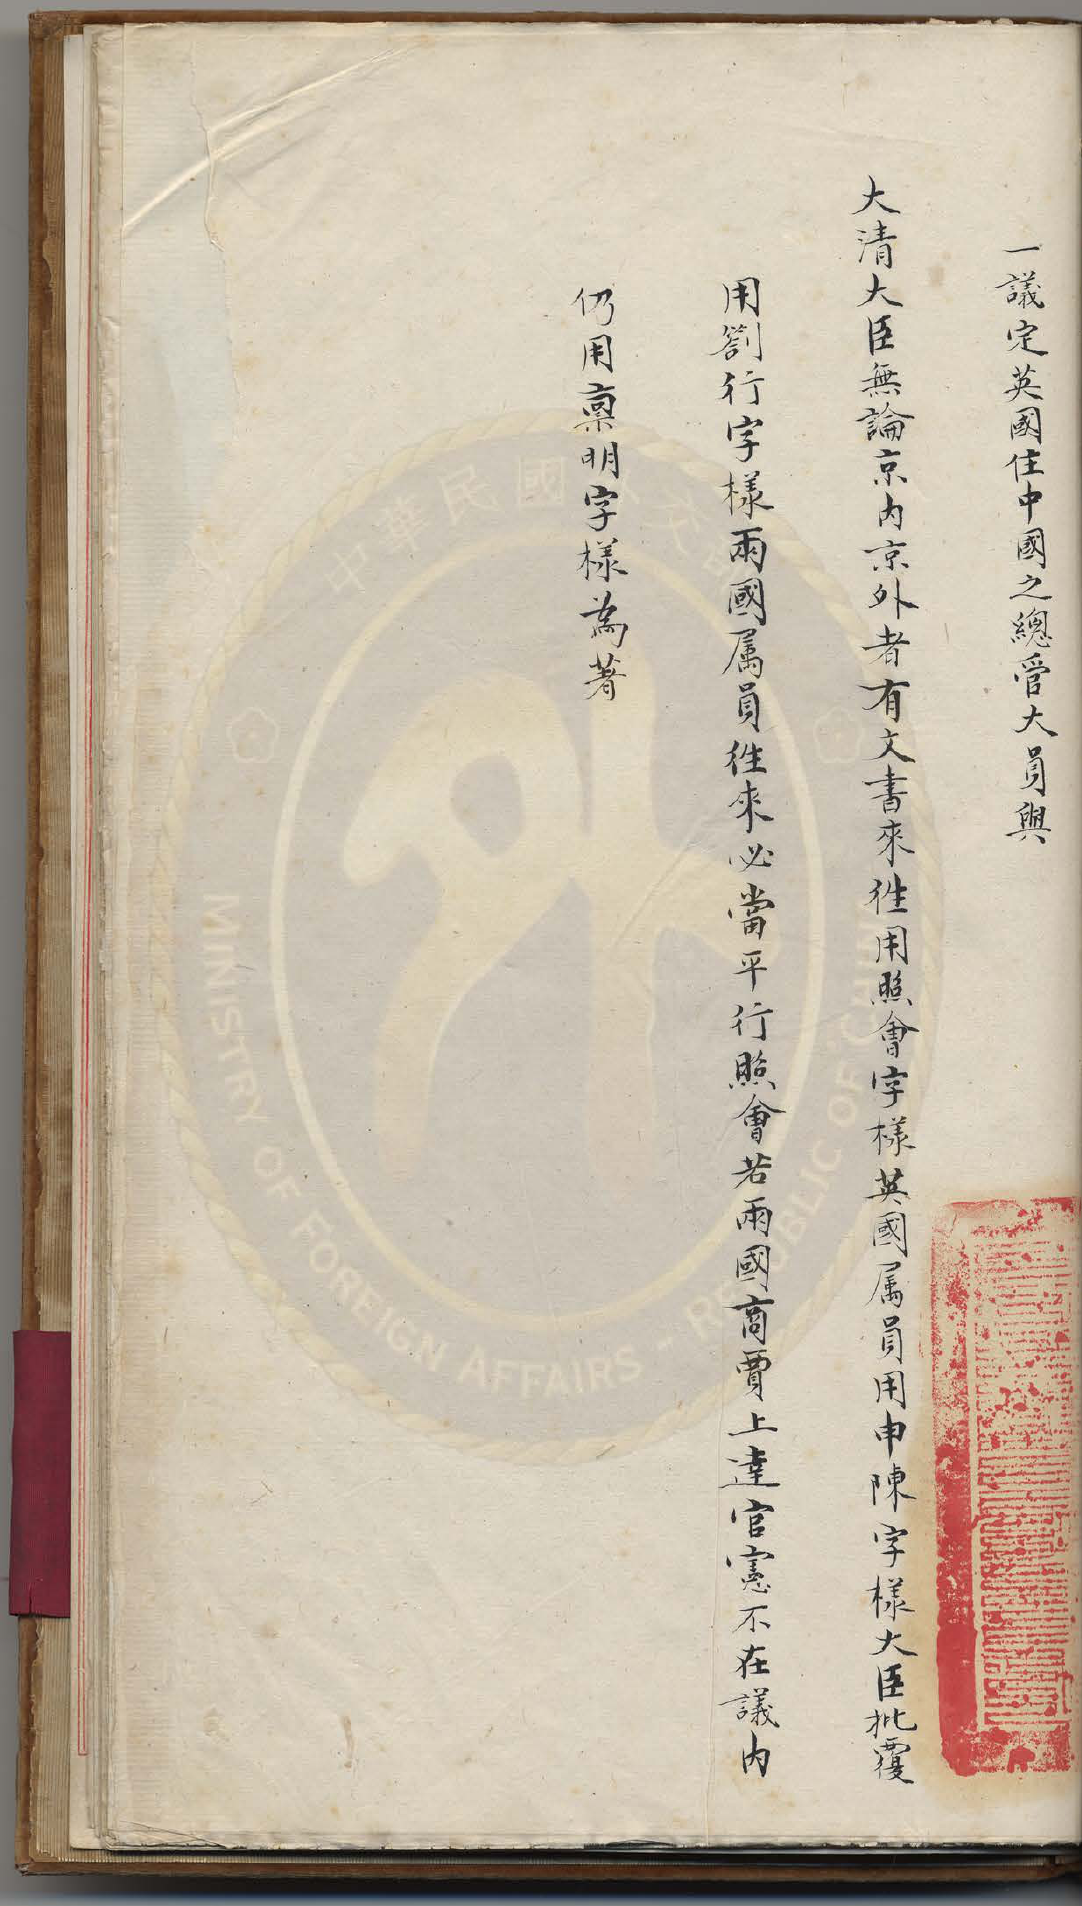 一議定英國住中國之總管大員與
大清大臣無論京內京外者有文書來往用照會字樣英國属員用申陳字樣大臣批覆
用劄行字樣兩國属員往來必當平行照會若兩國商賈上達官憲不在議內
仍用稟明字樣為著
中華民國外交部
MINISTRY OF FOREIGN AFFAIRS - REPUBLIC OF CHINA
外